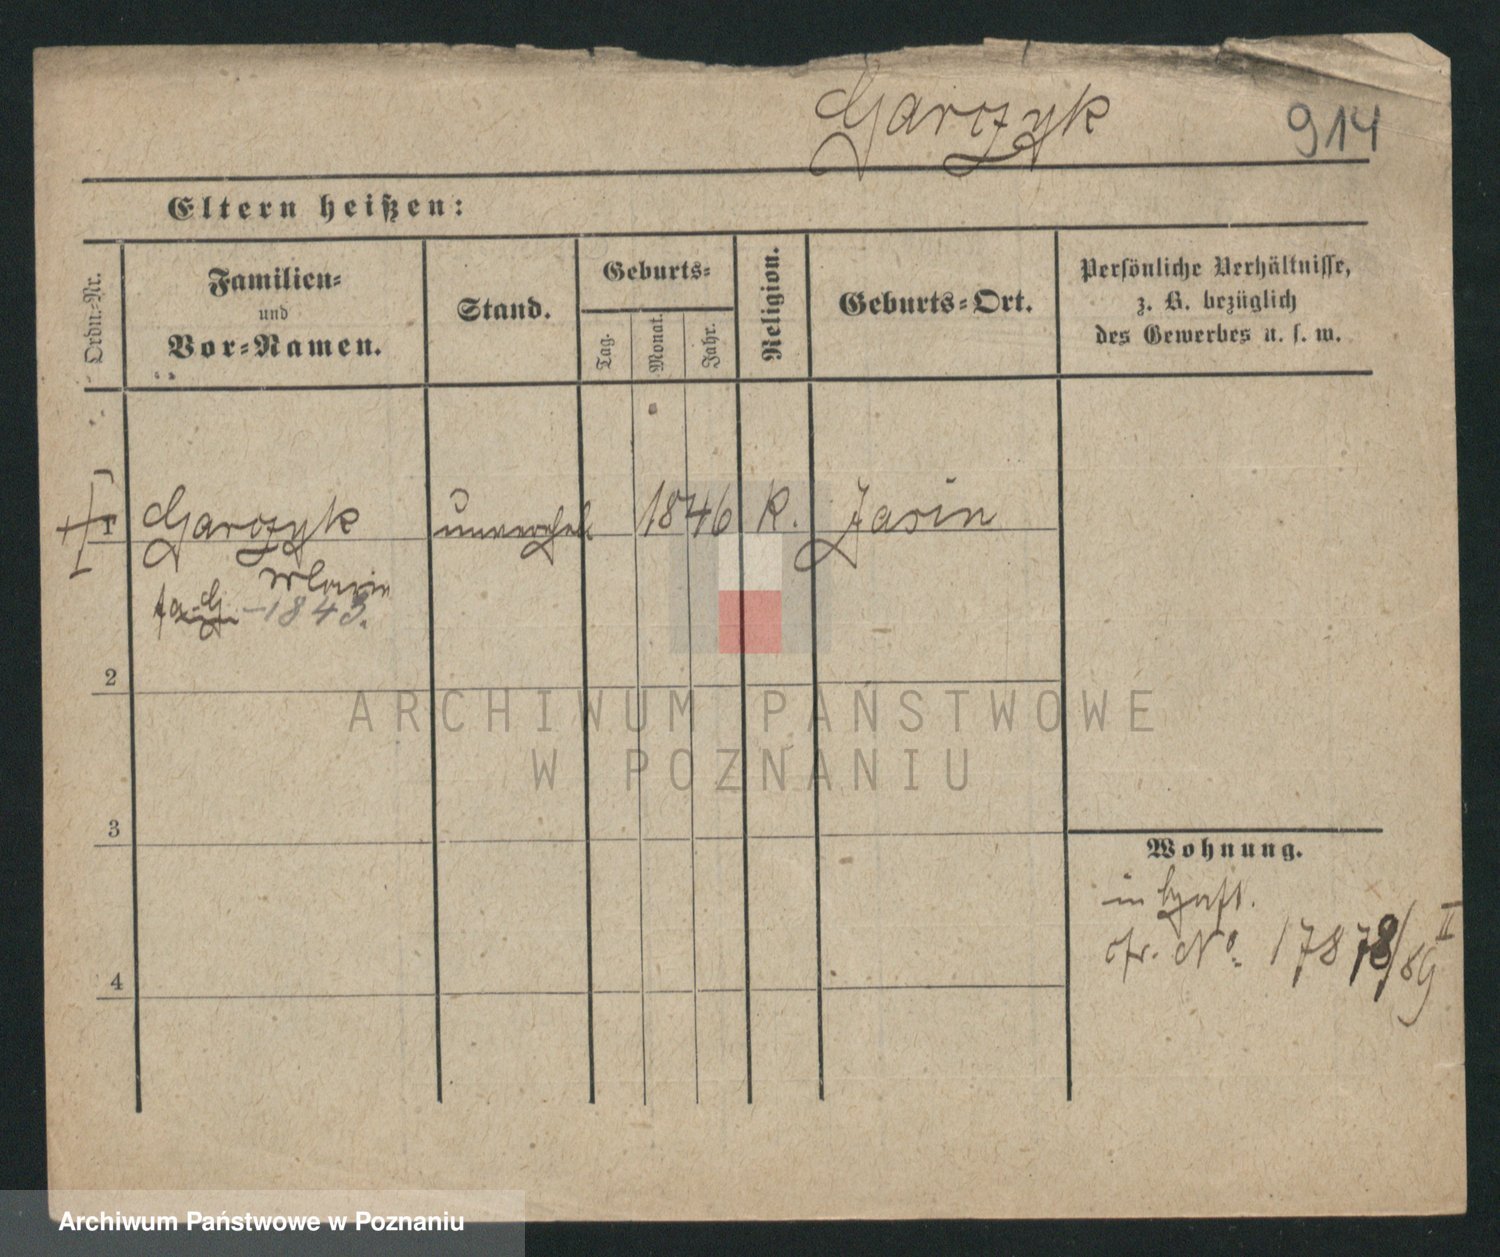 Garczyk 914
Eltern heißen:
Ordn.-Nr.
Familien-
und
Vor-Namen.
Stand.
Geburts-
Tag.
Monat.
Jahr.
Religion.
Geburts-Ort.
Persönliche Verhältnisse,
z. B. bezüglich
des Gewerbes u. s. w.
1 Garczyk unverehel 1846 K. Jarin
1843.
2
ARCHIWUM PAŃSTWOWE
W POZNANIU
3
Wohnung.
in Haft.
cfr. No. 17878/89 II
4
Archiwum Państwowe w Poznaniu